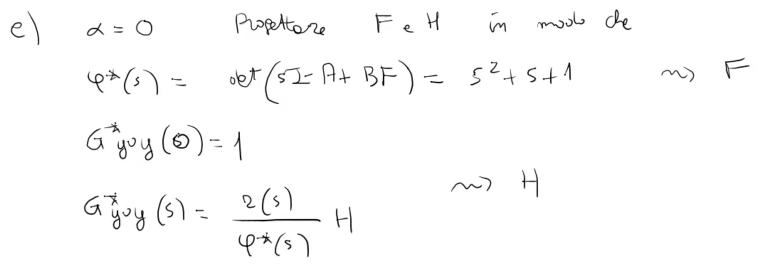 e) α = 0 Progettare F e H in modo che
φ*(s) = det(sI - A + BF) = s² + s + 1 ~> F
G*y⁰y(0) = 1
G*y⁰y(s) = r(s) / φ*(s) H ~> H